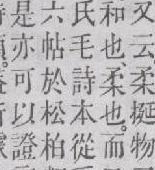 又云柔挺物
和也、柔也。而
氏毛詩本從
六帖於松柏
是亦可以證